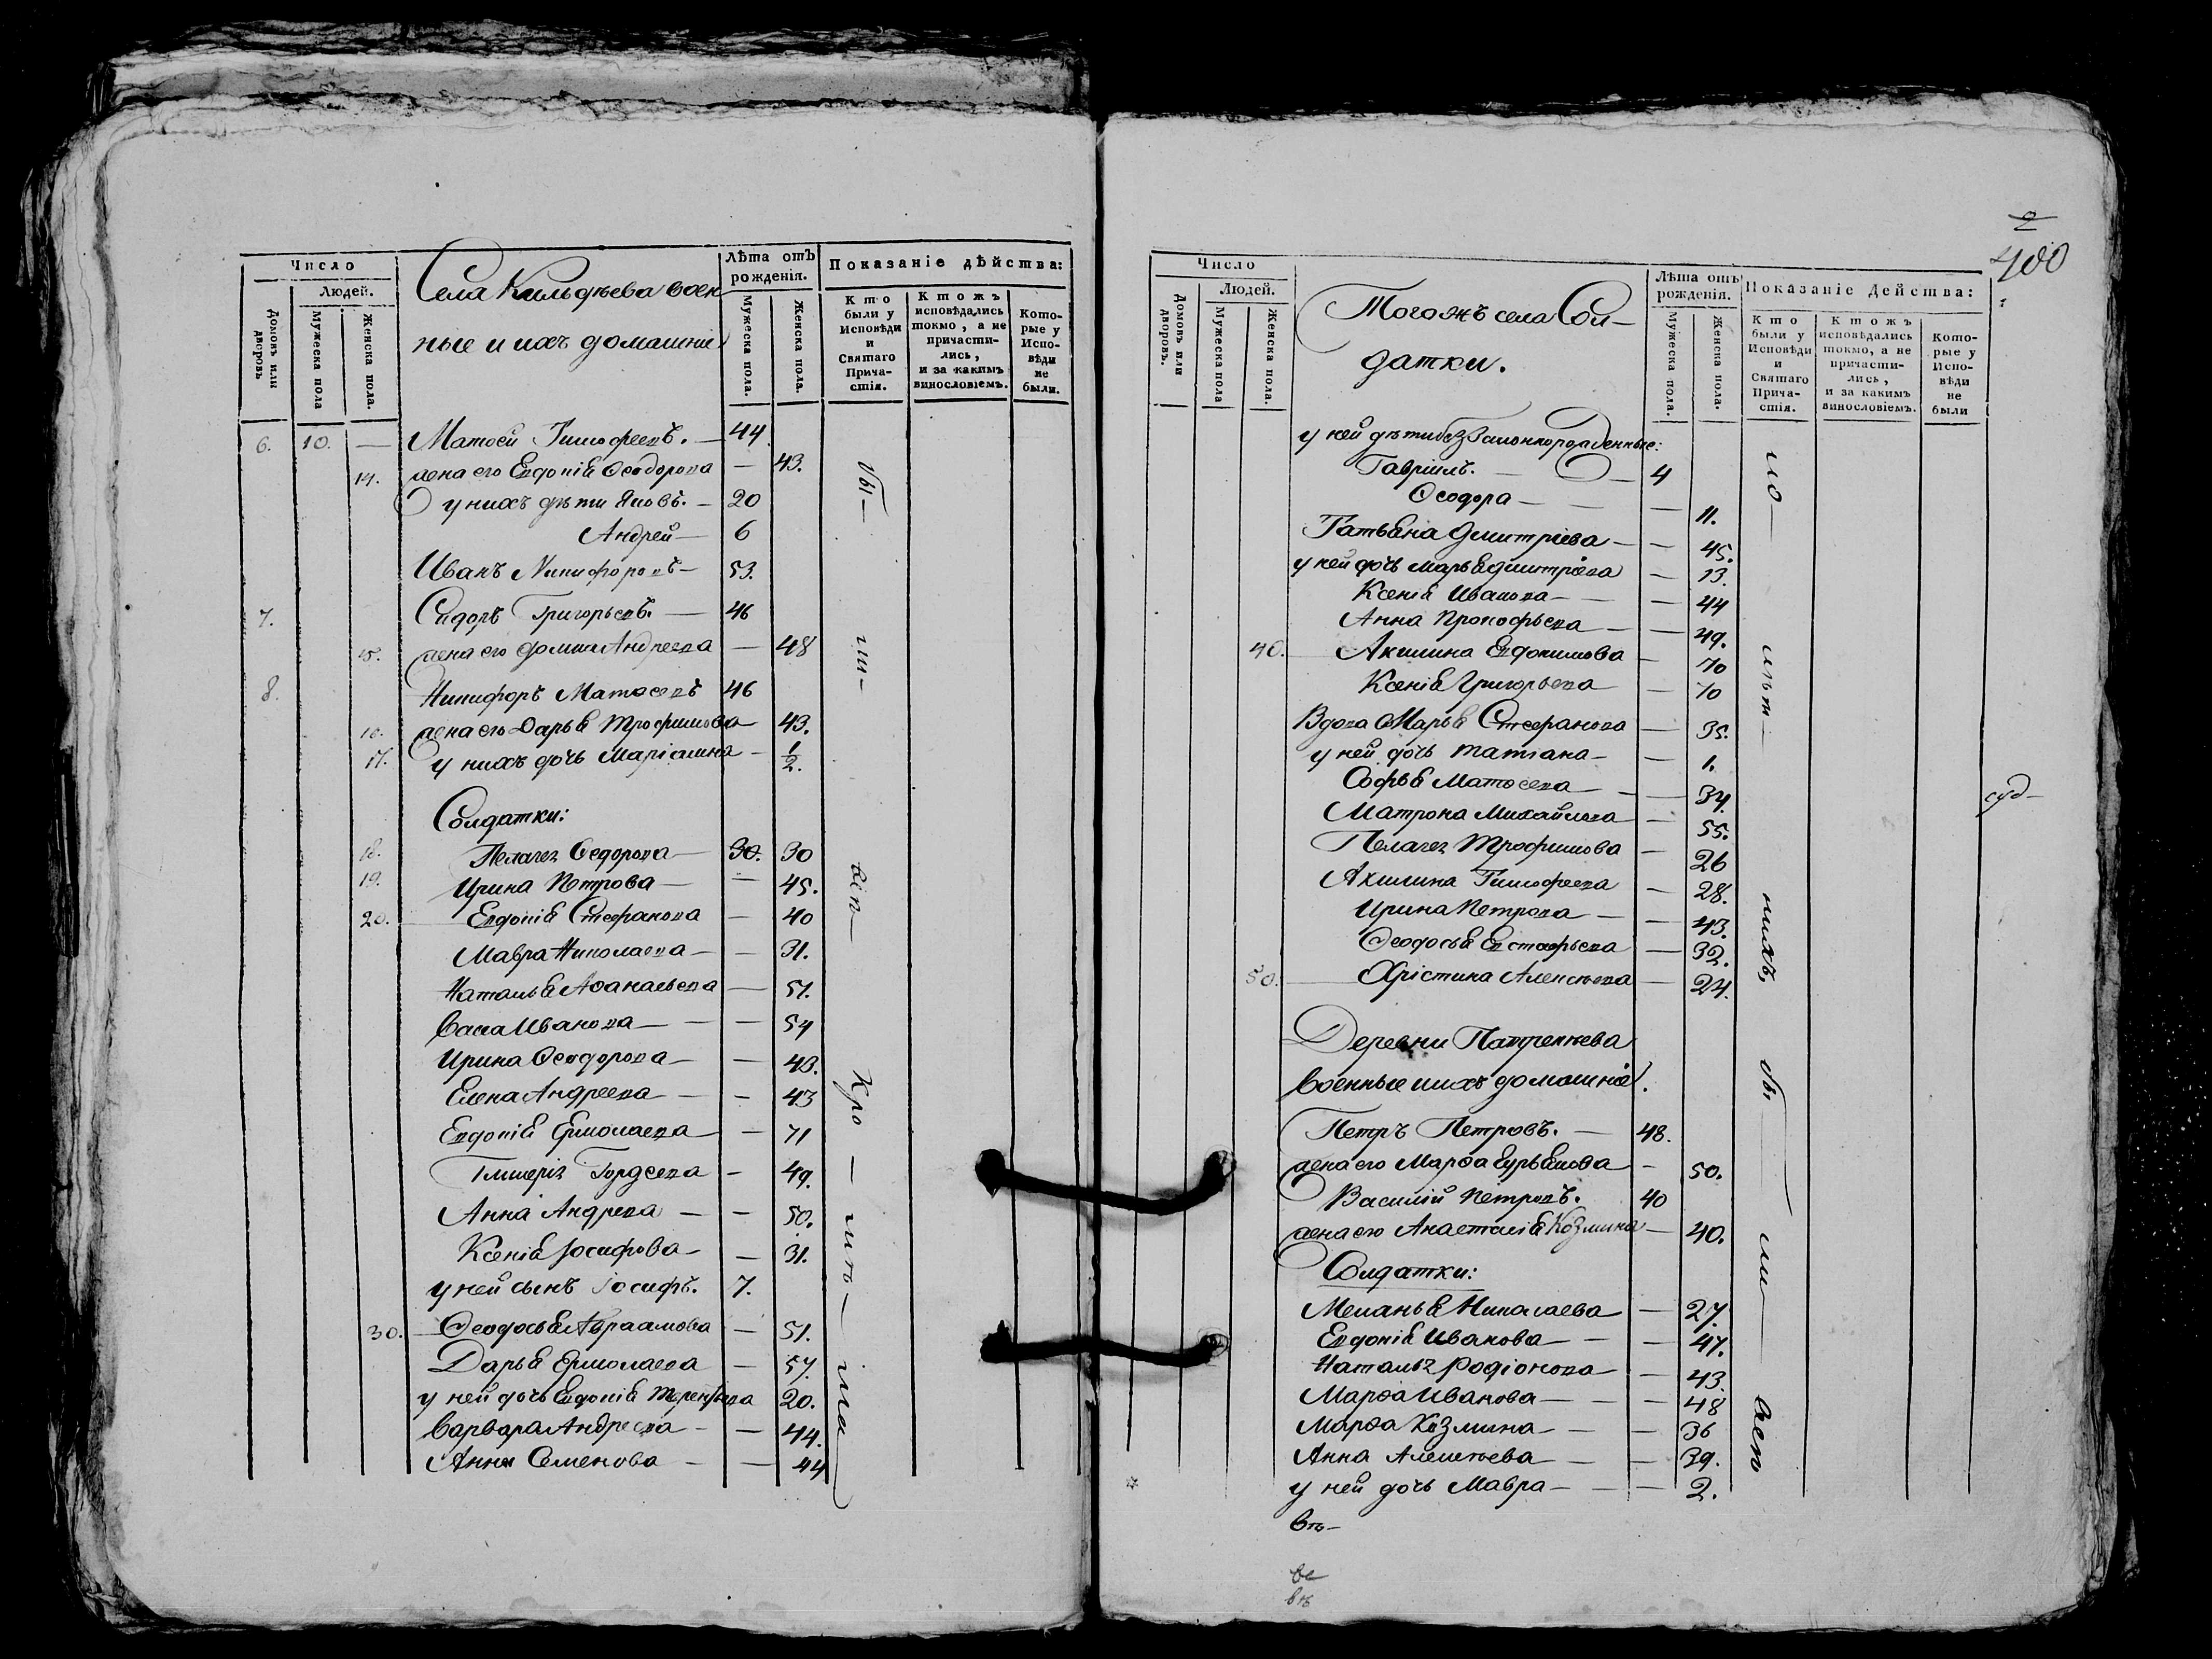 Число
Людей.
Домовъ или дворовъ
Мужеска пола
Женска пола.
Села Кильдѣева воен
ные и ихъ домашніе
Лѣта отъ рожденія.
Мужеска пола.
Женска пола.
Показаніе дѣйства:
Кто были у Исповѣди и Святаго Прича-стія.
Ктожъ исповѣдались токмо, а не причасти-лись, и за какимъ винословіемъ.
Кото-рые у Испо-вѣди не были.
6. 10. — Матѳей Тимофеевъ. — 44.
14. жена его Евдокія Ѳеодорова — 43.
у нихъ дѣти Яковъ. — 20
Андрей — 6
Иванъ Никифоровъ — 53.
7. Сидоръ Григорьевъ. — 46
15. жена его Домна Андреева — 48
8. Никифоръ Матѳеевъ 46
16. жена его Дарья Трофимова — 43.
17. у нихъ дочь Маріамна — 1/2.
Солдатки:
18. Пелагея Ѳедорова — 30. 30
19. Ирина Петрова — 45.
20. Евдокія Стефанова — 40
Мавра Николаева — 31.
Наталья Аѳанасьева — 51.
Васса Иванова — 54
Ирина Ѳеодорова — 43.
Елена Андреева — 43
Евдокія Ермолаева — 71
Гордеева — 49.
Анна Андреева — 50.
Ксенія Іосифова — 31.
у ней сынъ Іосифъ. 7.
30. Ѳеодосья Авраамова — 51.
Дарья Ермолаева — 57.
у ней дочь Евдокія Терентьева 20.
Варвара Андреева — 44.
Анна Семенова — 44
бы — ли — вси — Кро — мѣ — ма
2
400
Число
Людей.
Домовъ или дворовъ.
Мужеска пола
Женска пола.
Тогожъ села Сол—
датки.
Лѣта отъ рожденія.
Мужеска пола.
Женска пола.
Показаніе дѣйства:
Кто были у Исповѣди и Святаго Прича-стія.
Ктожъ исповѣдались токмо, а не причасти-лись, и за какимъ винословіемъ.
Кото-рые у Испо-вѣди не были
у ней дѣти беззаконнорожденные:
Гавріилъ. — 4
Ѳеодора — 11.
Татьяна Дмитріева — 45.
у ней дочь Марья Дмитріева — 13.
Ксенія Иванова — 44
Анна Прокофьева — 49.
40. Акилина Евдокимова — 70
Ксенія Григорьева — 70
Вдова Марья Стефанова — 35.
у ней дочь Татіана — 1.
Софья Матѳеева — 34.
Матрона Михайлова — 55.
Пелагея Трофимова — 26
Акилина Тимофеева — 28.
Ирина Петрова — 43.
Ѳеодосья Евстафьева — 32.
50. Христина Алексѣева — 24.
Деревни
военные и ихъ домашніе.
Петръ Петровъ. — 48.
жена его Марѳа Гурьянова — 50.
Василій Петровъ. 40
жена его Анастасія Козмина — 40.
Солдатки:
Меланья Николаева — 27.
Евдокія Иванова — 47.
Наталья Родіонова — 43.
Марѳа Иванова — 48
Марѳа Козмина — 36
Анна Алексѣева — 39.
у ней дочь Мавра — 2.
ло — лѣт — нихъ, бы — ли — вси